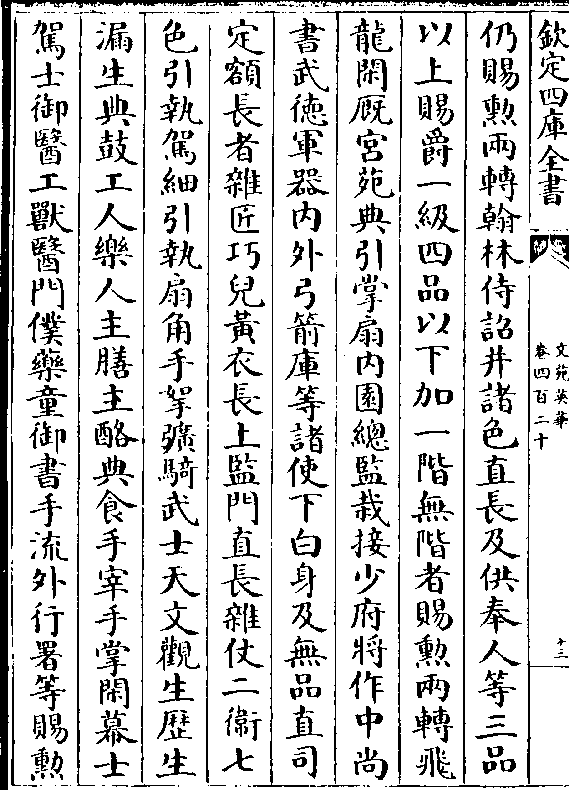 欽定四庫全書
文苑英華
卷四百二十
十三
仍賜勲兩轉翰林侍詔井諸色直長及供奉人等三品
以上賜爵一級四品以下加一階無階者賜勲兩轉飛
龍閑厩宫苑典引掌扇内園總監栽接少府將作中尚
書武徳軍器内外弓箭庫等諸使下白身及無品直司
定額長者雜匠巧兒黄衣長上監門直長雜仗二衛七
色引執駕細引執扇角手弩彍騎武士天文觀生歴生
漏生典鼓工人樂人主膳主酪典食手宰手掌閑幕士
駕士御醫工獸醫門僕藥童御書手流外行署等賜勲